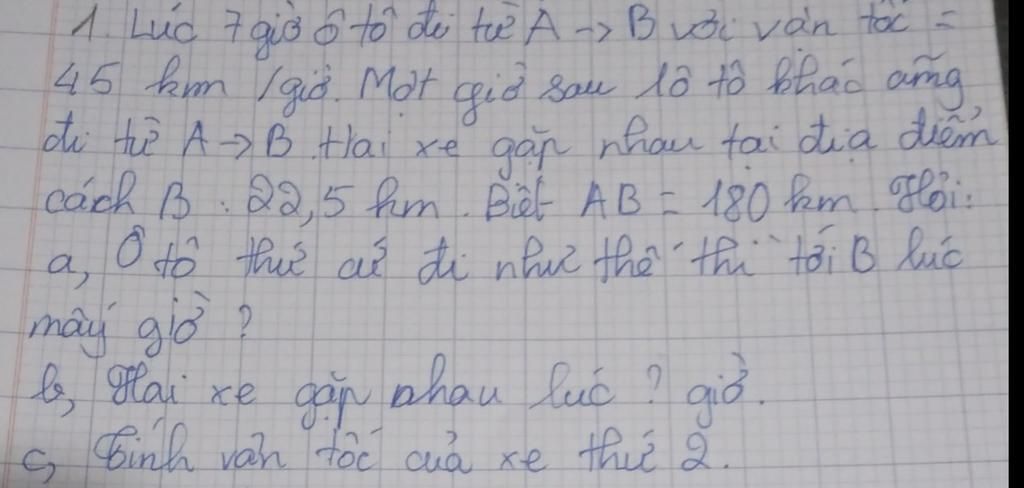 1. Lúc 7 giờ ô tô đi từ A → B với vận tốc =
45 km /giờ. Một giờ sau 1ô tô khác cũng
đi từ A → B. Hai xe gặp nhau tại địa điểm
cách B : 22,5 km. Biết AB = 180 km. Hỏi:
a, Ô tô thứ cứ đi như thế thì tới B lúc
mấy giờ ?
b, Hai xe gặp nhau lúc ? giờ.
c, Tính vận tốc của xe thứ 2.